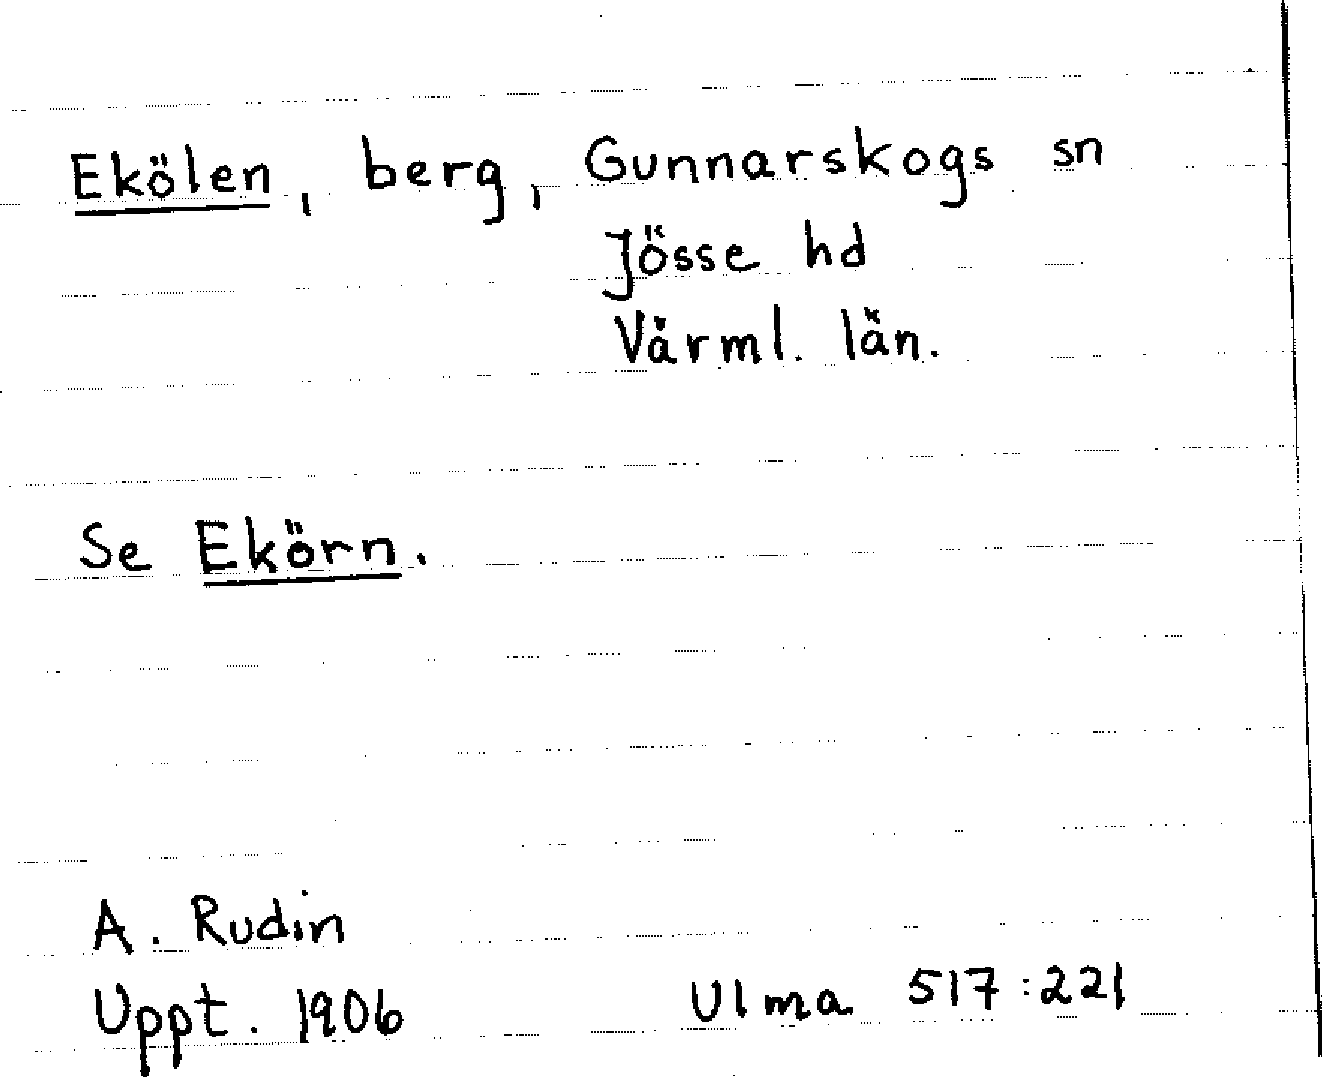 Ekölen, berg, Gunnarskogs sn
Jösse hd
Värml. län.
Se Ekörn.
A. Rudin
Uppt. 1906
Ulma 517:221